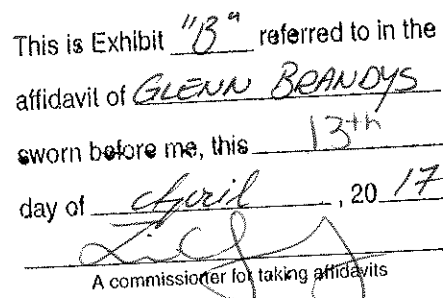 This is Exhibit "B" referred to in the
affidavit of GLENN BRANDYS
sworn before me, this 13th
day of April, 20 17
A commissioner for taking affidavits